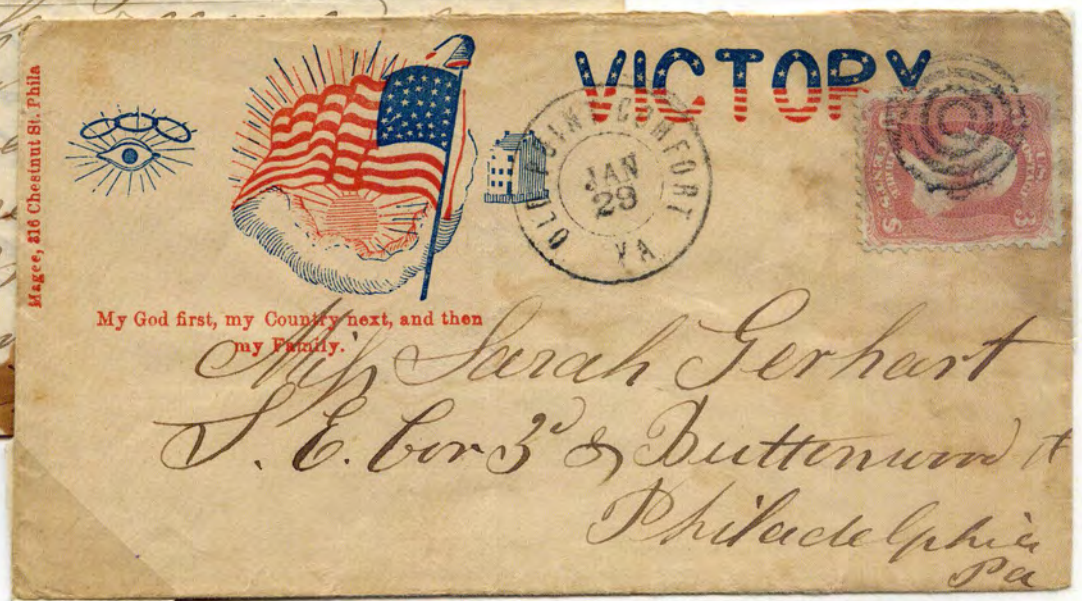 Magee, 316 Chestnut St. Phila
VICTORY
OLD POINT COMFORT
JAN
29
VA
U.S. POSTAGE
3 CENTS 3
My God first, my Country next, and then
my Family.
Miss Sarah Gerhart
S. E. Cor 3d & Buttonwood St
Philadelphia
Pa